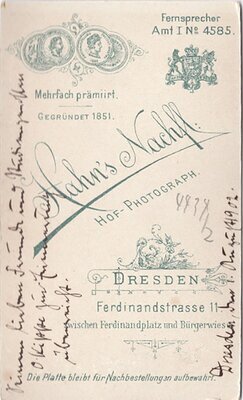 Fernsprecher
Amt I No 4585.
Mehrfach prämiirt.
GEGRÜNDET 1851.
Hahn's Nachfl.
HOF-PHOTOGRAPH.
4838/2
DRESDEN
Ferdinandstrasse 11
zwischen Ferdinandplatz und Bürgerwiese
Die Platte bleibt für Nachbestellungen aufbewahrt.
Seinem lieben Freunde und
zur Erinnerung
Dresden, den 1902.